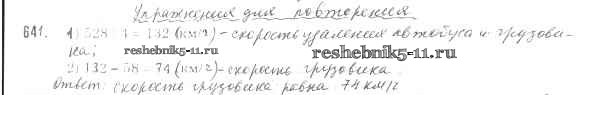 Упражнения для повторения
641. 1) 528 : 4 = 132 (км/ч) - скорость удаления автобуса и грузови-
ка; reshebnik5-11.ru reshebnik5-11.ru
2) 132 - 58 = 74 (км/ч) - скорость грузовика.
Ответ: скорость грузовика равна 74 км/ч